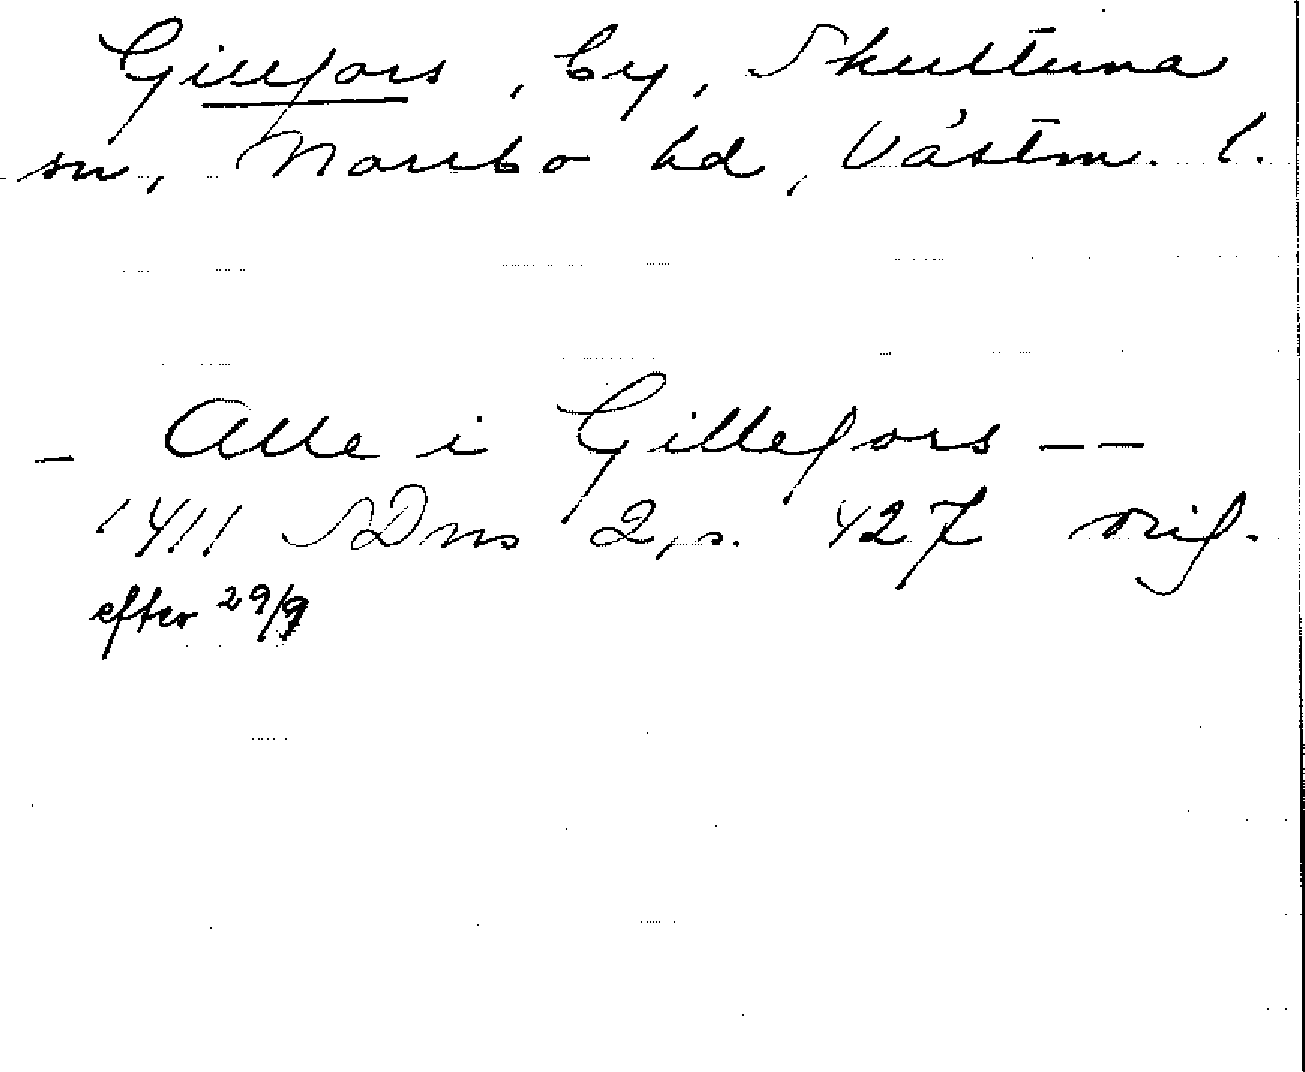 Gillefors, by, Skultuna
sn, Norrbo hd, Västm. l.
– Alle i Gillefors – –
1411 SDns 2, s. 427 orig.
efter 29/9